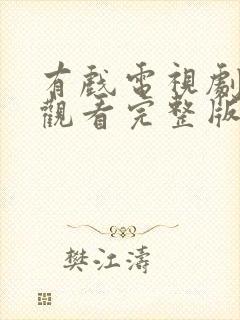 有戲電視劇
觀看完整版
樊江濤